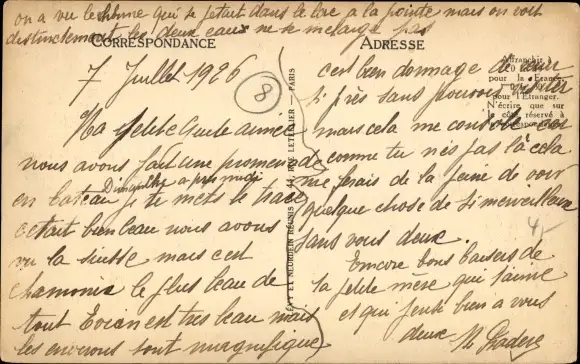 on a vu le Rhône qui se jetait dans le lac a la pointe mais on voit
distinctement les deux eaux ne se mélange pas
CORRESPONDANCE
7 Juillet 1926
8
Ma petite Gute aimée
nous avons fait une promenade
Dimanche apres midi
en bateau je te mets le tracé
cetait bien beau nous avons
vu la suisse mais cest
chamonix le plus beau de
tout Evian est tres beau mais
les environs sont magnifique
LEVY ET NEURDEIN RÉUNIS, 44, RUE LETELLIER — PARIS
ADRESSE
Affranchir
pour la France
pour l'Étranger.
N'écrire que sur
le côté réservé à
cest bien dommage de
si près sans pouvoir
mais cela me console
comme tu nés pas là cela
me ferais de la peine de voir
quelque chose de si merveilleux
sans vous deux
4/-
Encore bons baisers de
ta petite mère qui t'aime
et qui pense bien a vous
deux